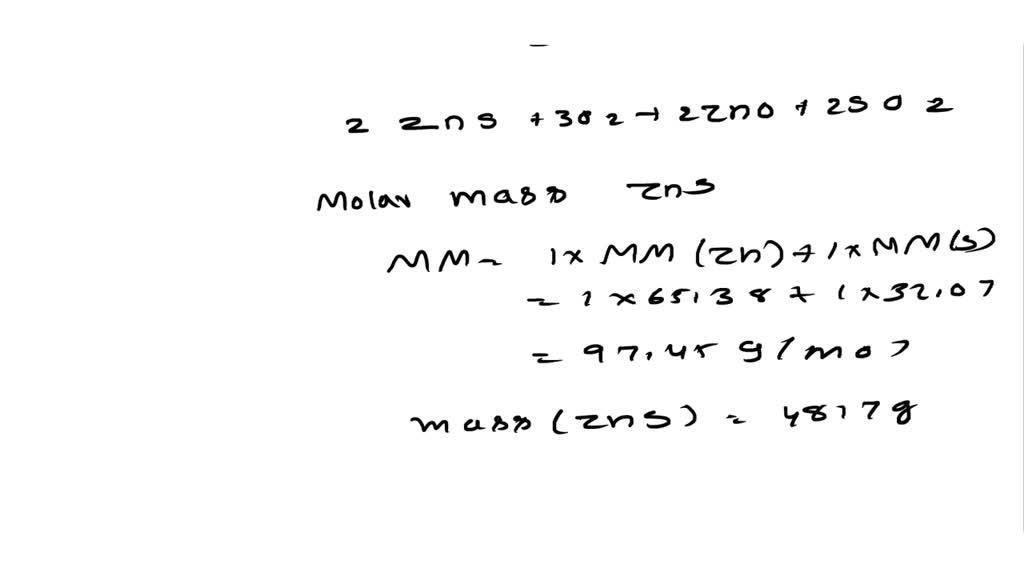 2 ZnS + 3O2 → 2ZnO + 2SO2
Molar mass ZnS
MM = 1× MM (Zn) + 1× MM(S)
= 1 × 65.38 + 1 × 32.07
= 97.45 g/mol
mass (ZnS) = 48.7 g